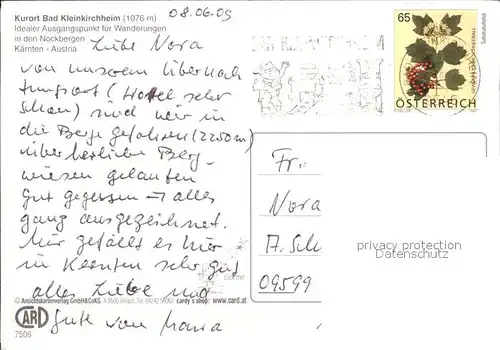 Kurort Bad Kleinkirchheim (1076 m)
Idealer Ausgangspunkt für Wanderungen
in den Nockbergen
Kärnten - Austria
08.06.09
65
ÖSTERREICH
Liebe Nora
von unserem Übernach
tungsort (Hotel sehr
schön) sind wir in
die Berge gefahren (2250m)
über herrliche Berg-
wiesen gelaufen
gut gegessen → alles
ganz ausgezeichnet.
Mir gefällt es hier
in Kärnten sehr gut
alles Liebe und
Gute von Maria
Fr.
Nora
A. Sch
09599
privacy protection
Datenschutz
© Ansichtskartenverlag GmbH&CoKG www.card.at
CARD
7506